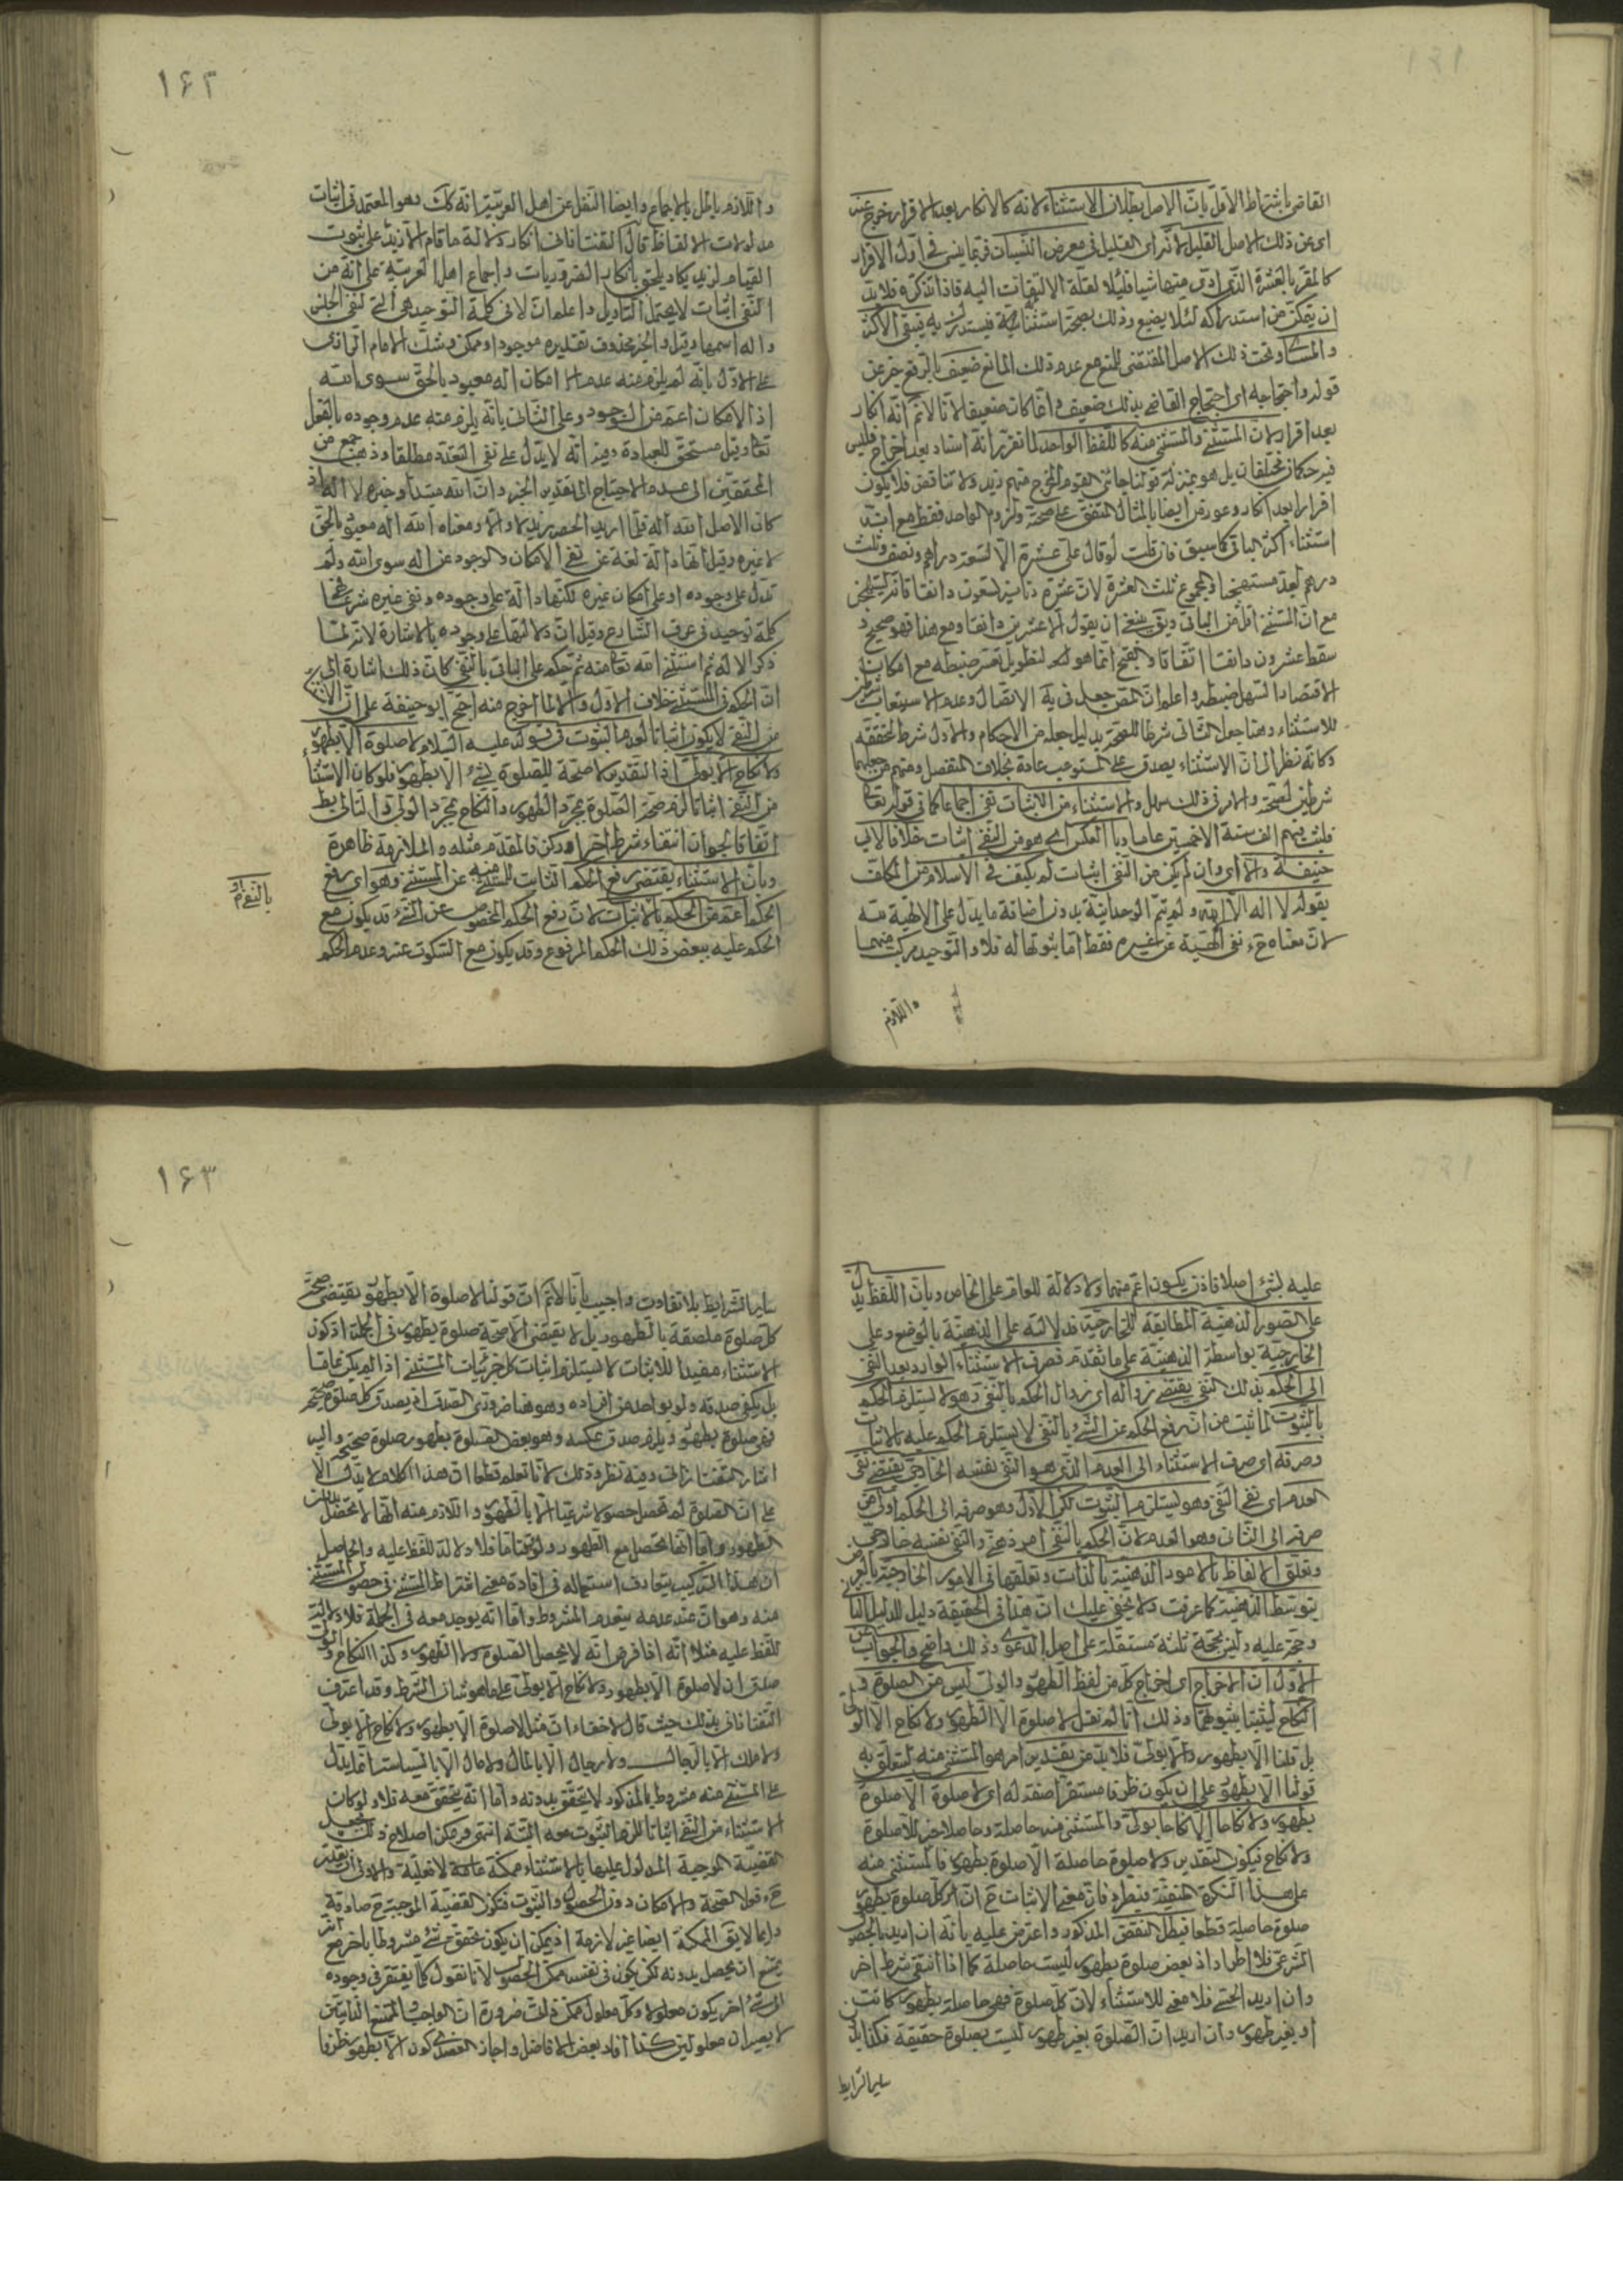 القاضي باشتراط الاقل بان الاصل بطلان الاستثناء لانه كالانكار بعد الاقرار خرج عنه
اى عن ذلك الاصل القليل لانه اى القليل فى معرض النسيان فربما ينسى فى اول الاقرار
كالمقر بالعشرة الذى ادى منها شيئا قليلا لقلة الالتفات اليه فاذا تذكره فلا بد
ان يتمكن من استدراكه لئلا يضيع وذلك بصحة استثنائه فيستدرك به فيبقى الاكثر
والمساوى تحت ذلك الاصل المقتضى للمنع مع عدم ذلك المانع ضعيف بالرفع خبر عن
قوله واحتجاجه اى احتجاج القاضى بذلك ضعيف وانما كان ضعيفا لانا لا نم انه انكار
بعد اقرار لان المستثنى والمستثنى منه كاللفظ الواحد لما تقرر انه اسناد بعد اخراج فليس
فيه حكمان مختلفان بل هو بمنزلة قولنا جائنى القوم المخرج منهم زيد ولا تناقض فلا يكون
اقرارا بعد انكار وعورض ايضا بالمثال المتفق على صحته ولزوم الواحد فقط مع انه
استثناء اكثر الباقى كما سبق فان قلت لو قال على عشرة الا تسعة دراهم ونصف وثلث
درهم لعد مستهجنا
مع ان المستثنى اقل من الباقى ينبغى ان يقول الا عشرين دانقا ومع هذا فهو صحيح
سقط عشرون دانقا اتفاقا والقبح انما هو لتطويل تعسر ضبطه مع امكان
الاقتصار السهل ضبطه واعلم ان المص جعل فى يه الاتصال وعدم الاستيعاب شرطين
للاستثناء وهنا جعل الثانى شرطا للصحة بدليل جعله من الاحكام والاول شرط لتحققه
وكانه نظر الى ان الاستثناء يصدق على المستوعب عادة بخلاف المنفصل ومنهم من جعلهما
شرطين لصحته والامر فى ذلك سهل والاستثناء من الاثبات نفى اجماعا كما فى قوله تعالى
فلبث فيهم الف سنة الا خمسين عاما وبالعكس اى هو من النفى اثبات خلافا لابى
حنيفة والا اى وان لم يكن من النفى اثبات لم يكتف فى الاسلام من المكلف
بقوله لا اله الا الله ولم يتم الوحدانية بدون اضافة ما يدل على الالهية منه
لان معناه ح نفى الهية عن غيره فقط اما ثبوتها له فلا والتوحيد مركب منهما
واللازم
۱۶۲
واللازم باطل بالاجماع وايضا النقل عن اهل العربية انه كك وهو المعتمد فى اثبات
مدلولات الالفاظ قال التفتازانى انكار دلالة ما قام الا زيد على ثبوت
القيام لزيد يكاد يلحق بانكار الضروريات واجماع اهل العربية على انه من
النفى اثبات لا يحتمل التاويل واعلم ان لا فى كلمة التوحيد هى التى لنفى الجنس
واله اسمها وقيل والخبر محذوف تقديره موجود او ممكن وشكك الامام الرازى
على الاول بانه لم يلزم منه عدم امكان اله معبود بالحق سوى الله
اذ الامكان اعم من الوجود وعلى الثانى بانه يلزم منه عدم وجوده بالفعل
تعالى وقيل مستحق للعبادة وفيه انه لا يدل على نفى التعدد مطلقا وذهب جمع من
المحققين الى عدم الاحتياج الى تقدير الخبر وان الله مبتدأ وخبره لا اله اذ
كان الاصل الله اله فلما اريد الحصر زيد لا والا ومعناه الله اله معبود بالحق
لا غيره وقيل انها دالة لغة عن نفى الامكان والوجود عن اله سوى الله ولم
تدل على وجوده او على امكان غيره لكنها دالة على وجوده ونفى غيره شرعا
كلمة توحيد فى عرف الشارع وقيل ان دلالتها على وجوده بالاشارة لانه لما
ذكر الاله ثم استثنى الله تعالى منه ثم حكم على الباقى بالنفى كان ذلك اشارة الى
ان الحكم فى المستثنى خلاف الاول والا لما اخرج منه احتج ابو حنيفة على ان الاستثناء
من النفى لا يكون اثباتا لعدم الثبوت فى قوله عليه السلام لا صلوة الا بطهور
ولا نكاح الا بولى اذ التقدير لا صحة للصلوة بشئ الا بطهور فلو كان الاستثناء
من النفى اثباتا لزم صحة الصلوة بمجرد الطهور والنكاح بمجرد الولى والتالى بط
اتفاقا لجواز انتفاء شرط آخر او ركن فالمقدم مثله والملازمة ظاهرة
وبان الاستثناء يقتضى رفع الحكم الثابت للمستثنى منه عن المستثنى وهو اى رفع
الحكم اعم من الحكم بالاثبات لان رفع الحكم المخصوص عن الشئ قد يكون مع
الحكم عليه ببعض ذلك الحكم المرفوع وقد يكون مع السكوت عنه وعدم الحكم
عليه بشئ اصلا فاذن يكون اعم منهما ولا دلالة للعام على الخاص وبان اللفظ يدل
على الصور الذهنية المطابقة للخارجية فدلالته على الذهنية بالوضع وعلى
الخارجية بواسطة الذهنية على ما تقدم فصرف الاستثناء الوارد بعد النفى
الى الحكم بذلك النفى يقتضى زواله اى زوال الحكم بالنفى وهو لا يستلزم الحكم
بالثبوت لما ثبت من ان رفع الحكم عن الشئ بالنفى لا يستلزم الحكم عليه بالاثبات
وصرفه اى صرف الاستثناء الى العدم الذى هو النفى نفسه الخارجى يقتضى نفى
العدم اى نفى النفى وهو يستلزم الثبوت لكن الاول وهو صرفه الى الحكم اولى من
صرفه الى الثانى وهو العدم لان الحكم بالنفى امر ذهنى والنفى نفسه خارجى
وتعلق الالفاظ بالامور الذهنية بالذات وتعلقها فى الامور الخارجية بالعرض
بتوسط الذهنية كما عرفت ولا يخفى عليك ان هذا فى الحقيقة دليل للدليل الثانى
وحجة عليه وليس بحجة ثلثة مستقلة على اصل الدعوى وذلك واضح والجواب عن
الاول ان الاخراج اى اخراج كل من لفظ الطهور والولى ليس من الصلوة و
النكاح ليثبتا بثبوتهما وذلك انا لم نقل لا صلوة الا الطهور ولا نكاح الا الولى
بل قلنا الا بطهور والا بولى فلا بد من تقدير امر هو المستثنى منه لتعلق به
قولنا الا بطهور على ان يكون ظرفا مستقرا صفة له اى لا صلوة الا صلوة
بطهور ولا نكاحا الا نكاحا بولى والمستثنى منه حاصلة وحاصلا خبر للاصلوة
ولا نكاح فيكون التقدير ولا صلوة حاصلة الا صلوة بطهور فالمستثنى منه
على هذا النكرة المنفية فيطرد فان معنى الاثبات ح ان كل صلوة بطهور
صلوة حاصلة قطعا فبطل النقض المذكور واعترض عليه بانه ان اريد بالحصول
الشرعى فلا اطراد اذ بعض صلوة بطهور ليست حاصلة كما اذا انتفى شرط آخر
وان اريد الحسى فلا معنى للاستثناء لان كل صلوة فهى حاصلة بطهور كانت
او بغير طهور وان اريد ان الصلوة بغير طهور ليست بصلوة حقيقة فكذا بدون
ساير الشرايط
۱۶۳
ساير الشرايط بلا تفاوت واجيب بانا لا نم ان قولنا لا صلوة الا بطهور يقتضى صحة
كل صلوة ملصقة بالطهور بل لا يقتضى الا صحة صلوة بطهور فى الجملة اذ كون
الاستثناء مفيدا للاثبات لا يستلزم اثبات كل جزئيات المستثنى اذا لم يكن عاما
بل يكفى صدقه ولو بواحد من افراده وهو هنا ضرورى الصدق اذ يصدق كل صلوة صحيحة
فهى صلوة بطهور ويلزم صدق عكسه وهو بعض الصلوة بطهور صلوة صحيحة واليه
اشار التفتازانى وفيه نظر وذلك لانا نعلم قطعا ان هذا الكلام لا يدل الا
على ان الصلوة لم تحصل حصولا شرعيا الا بالطهور واللازم منه انها لا تحصل بدون
الطهور واما انها تحصل مع الطهور ولو وقتا ما فلا دلالة للفظ عليه والحاصل
ان هذا التركيب يتعارف استعماله فى افادة معنى اشتراط المستثنى فى حصول المستثنى
منه وهو ان عند عدمه ينعدم المشروط واما انه يوجد معه فى الجملة فلا دلالة
للفظ عليه مثلا انه اذا فرض انه لا يحصل الصلوة ولا الطهور وكذا النكاح والولى
صدق ان لا صلوة الا بطهور ولا نكاح الا بولى على ما هو شان الشرط وقد اعترف
التفتازانى بذلك حيث قال لا خفاء ان مثل لا صلوة الا بطهور ولا نكاح الا بولى
ولا ملك الا بالرجال ولا رجال الا بالمال ولا مال الا بالسياسة انما يدل
على المستثنى منه مشروط بالمذكور لا يتحقق بدونه واما انه يتحقق معه فلا ولو كان
الاستثناء من النفى اثباتا للزم الثبوت معه البتة انتهى ويمكن اصلاح ذلك بجعل
القضية الموجبة المدلول عليها بالاستثناء ممكنة عامة لا فعلية والاولى ان يقدر
ح قولا الصحة والامكان دون الحصول والثبوت فتكون القضية الموجبة ح صادقة
دايما لا يق الممكنة ايضا غير لازمة اذ يمكن ان يكون تحقق شئ مشروطا بآخر مع انه
يمتنع ان يحصل بدونه لكن يكون فى نفسه ممكن الحصول لانا نقول كلما يفتقر فى وجوده
الى شئ آخر يكون معلولا وكل معلول ممكن ذلك ضرورة ان الواجب والممتنع الذاتيين
لا يصيران معلولين كذا افاد بعض الافاضل واجاز العضدى كون الا بطهور ظرفا